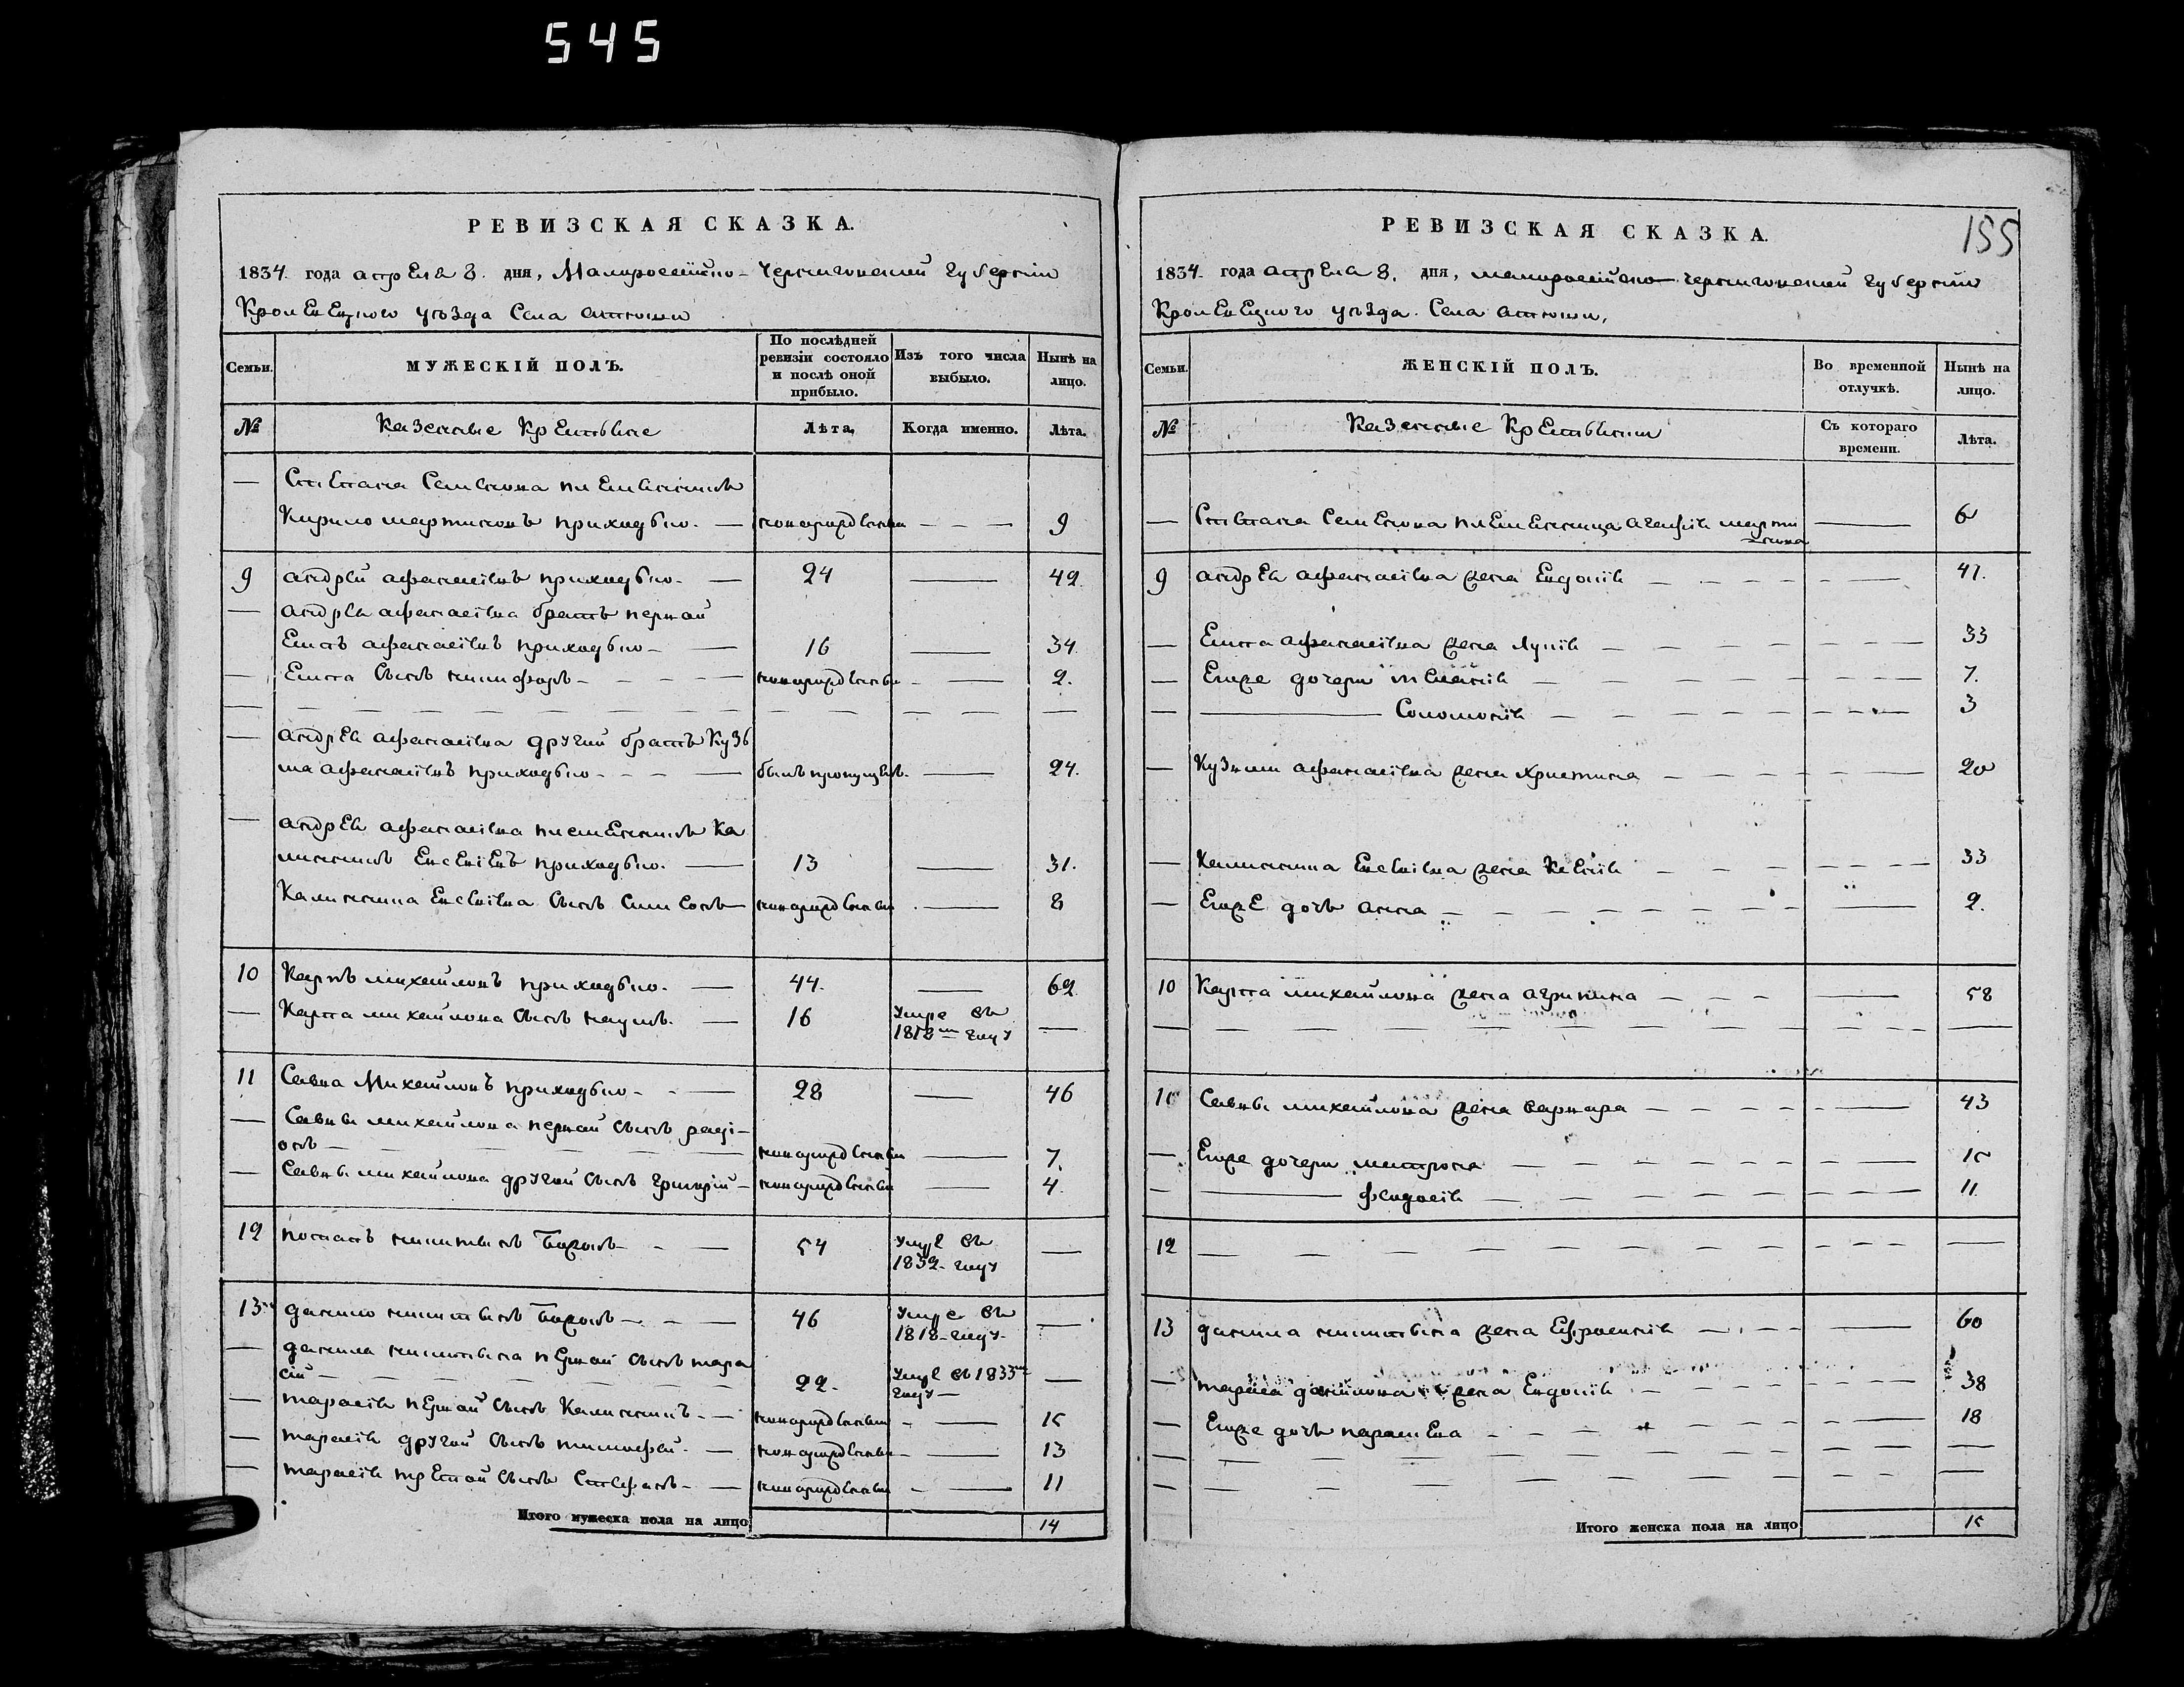 545
РЕВИЗСКАЯ СКАЗКА.
1834. года апреля 8. дня, Малоросейско-Черниговской губернии
Кролевецкого уезда Села Атюши
Семьи. МУЖЕСКІЙ ПОЛЪ. По послѣдней ревизіи состояло и послѣ оной прибыло. Изъ того числа выбыло. Нынѣ на лицо.
№ Казенные Крестьяне Лѣта, Когда именно. Лѣта.
— Степана Семенова племянникъ
Кирило мартиновъ приходько. — новорожденный — — — 9
9 андрей афанасіевъ приходько. — 24 — 42.
— андрея афанасіева братъ первой
Емелъ афанасіевъ приходько — 16 — 34
— сынъ никифоръ — новорожденный — 2.
— андрея афанасіева другой братъ Кузь
ма афанасіевъ приходько — былъ пропущенъ — 24.
— андрея афанасіева племянникъ Ка
линникъ Евсевіевъ приходько. — 13 — 31.
Калинника Евсевіева сынъ Симеонъ — новорожденный — 8
10 Карпъ михайловъ приходько. — 44. — 62
— Карпа михайлова сынъ наумъ — 16 Умре въ
1812м году —
11 Савва Михайловъ приходько — 28 — 46
— Саввы михайлова первой сынъ раді-
онъ — новорожденный — 7
— Саввы михайлова другой сынъ григорій — новорожденный — 4.
12 потапъ никитинъ — 54 Умре въ
1832 году —
13 данило никитинъ — 46 Умре въ
1818 году —
— данила никитина первой сынъ тара
сій — 22. Умре въ 1833м
году — —
— тарасія первой сынъ Калинникъ — новорожденный — 15
— тарасія другой сынъ тимофей — новорожденный — 13
— тарасія третой сынъ Стефанъ — новорожденный — 11
Итого мужеска пола на лицо 14
155
РЕВИЗСКАЯ СКАЗКА.
1834 года апреля 8. дня, малоросейско-черниговской губернии
Кролевецкого уезда. Села атюши,
Семьи. ЖЕНСКІЙ ПОЛЪ. Во временной отлучкѣ. Нынѣ на лицо.
№ Казенные Крестьянки Съ котораго времени. Лѣта.
— Степана Семенова племянница агафія марти
нова — 6
9 андрея афанасіева жена Евдокія — 41.
— афанасіева жена — 33
— Егоже дочери — 7.
— Соломонія — 3
— Кузьми афанасіева жена христина — 20
— Калинника Евсевіева жена Ксенія — 33
— Егоже дочь анна — 2.
10 Карпа михайлова жена агрипина — 58
11 Саввы михайлова жена варвара — 43
— Егоже дочери матрона — 15
— феодосія — 11.
12 —
13 данила никитина жена Ефросинія — 60
— тарасія данилова жена Евдокія — 38
— Егоже дочь параскева — 18
Итого женска пола на лицо 15